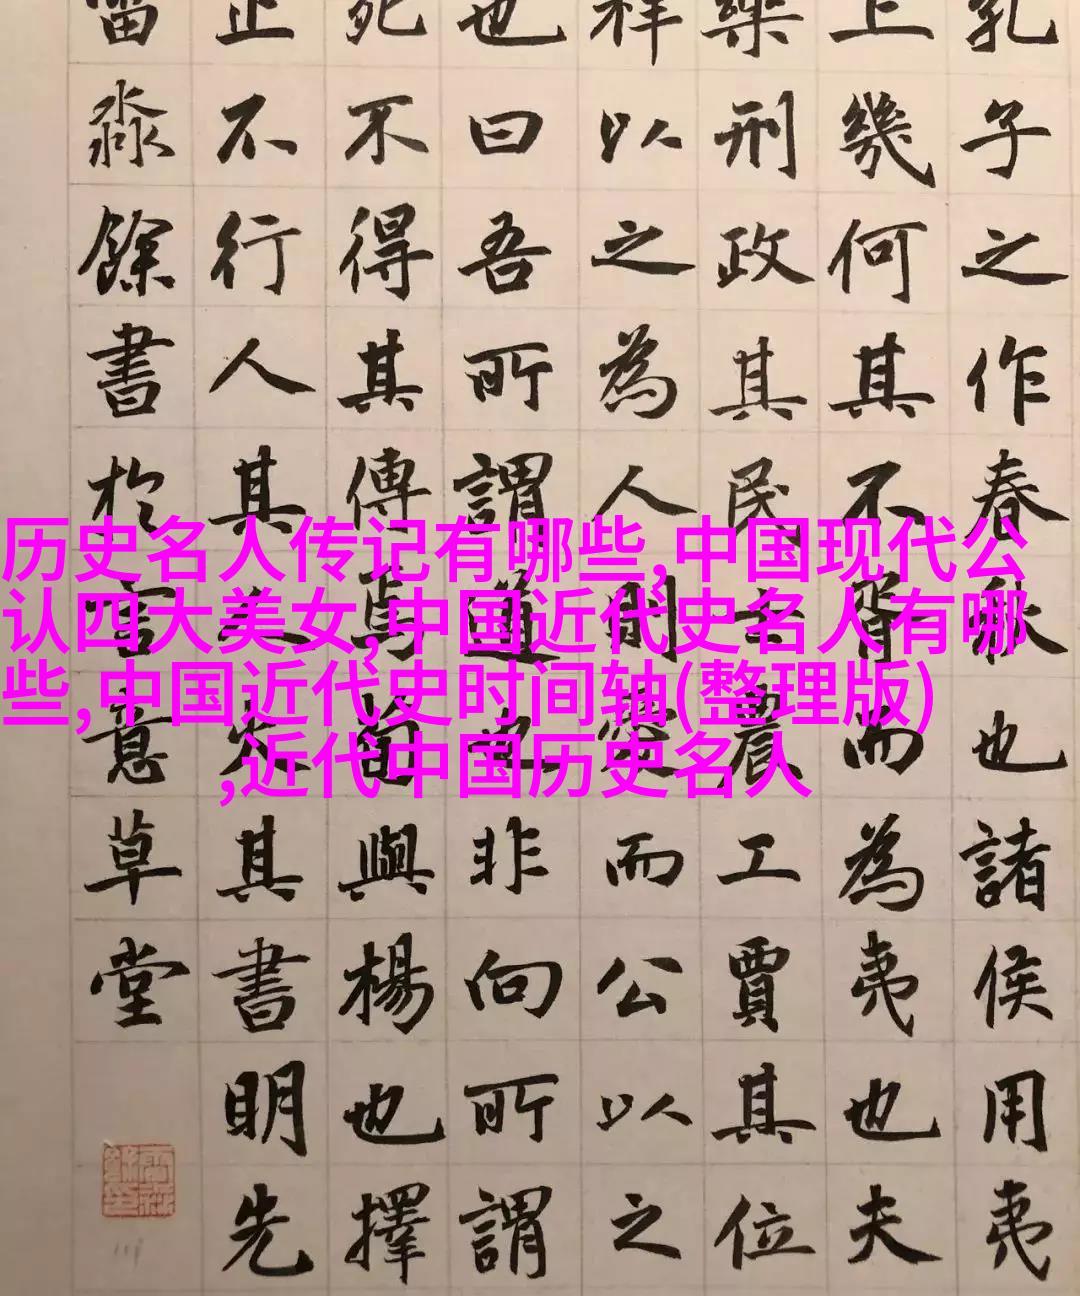 孔子之作春秋也諸侯用夷
上幾何其不胥而為夷也夫
樂刑政其民士農工賈其位
祥以之為人則愛而公以之
也曰吾所謂道也非向所謂
死不得其傳焉荀與楊也擇
止不行人其人火其書明先
雷淼餘書於意草堂
历史名人传记有哪些,中国现代公
认四大美女,中国近代史名人有哪
些,中国近代史时间轴(整理版)
,近代中国历史名人